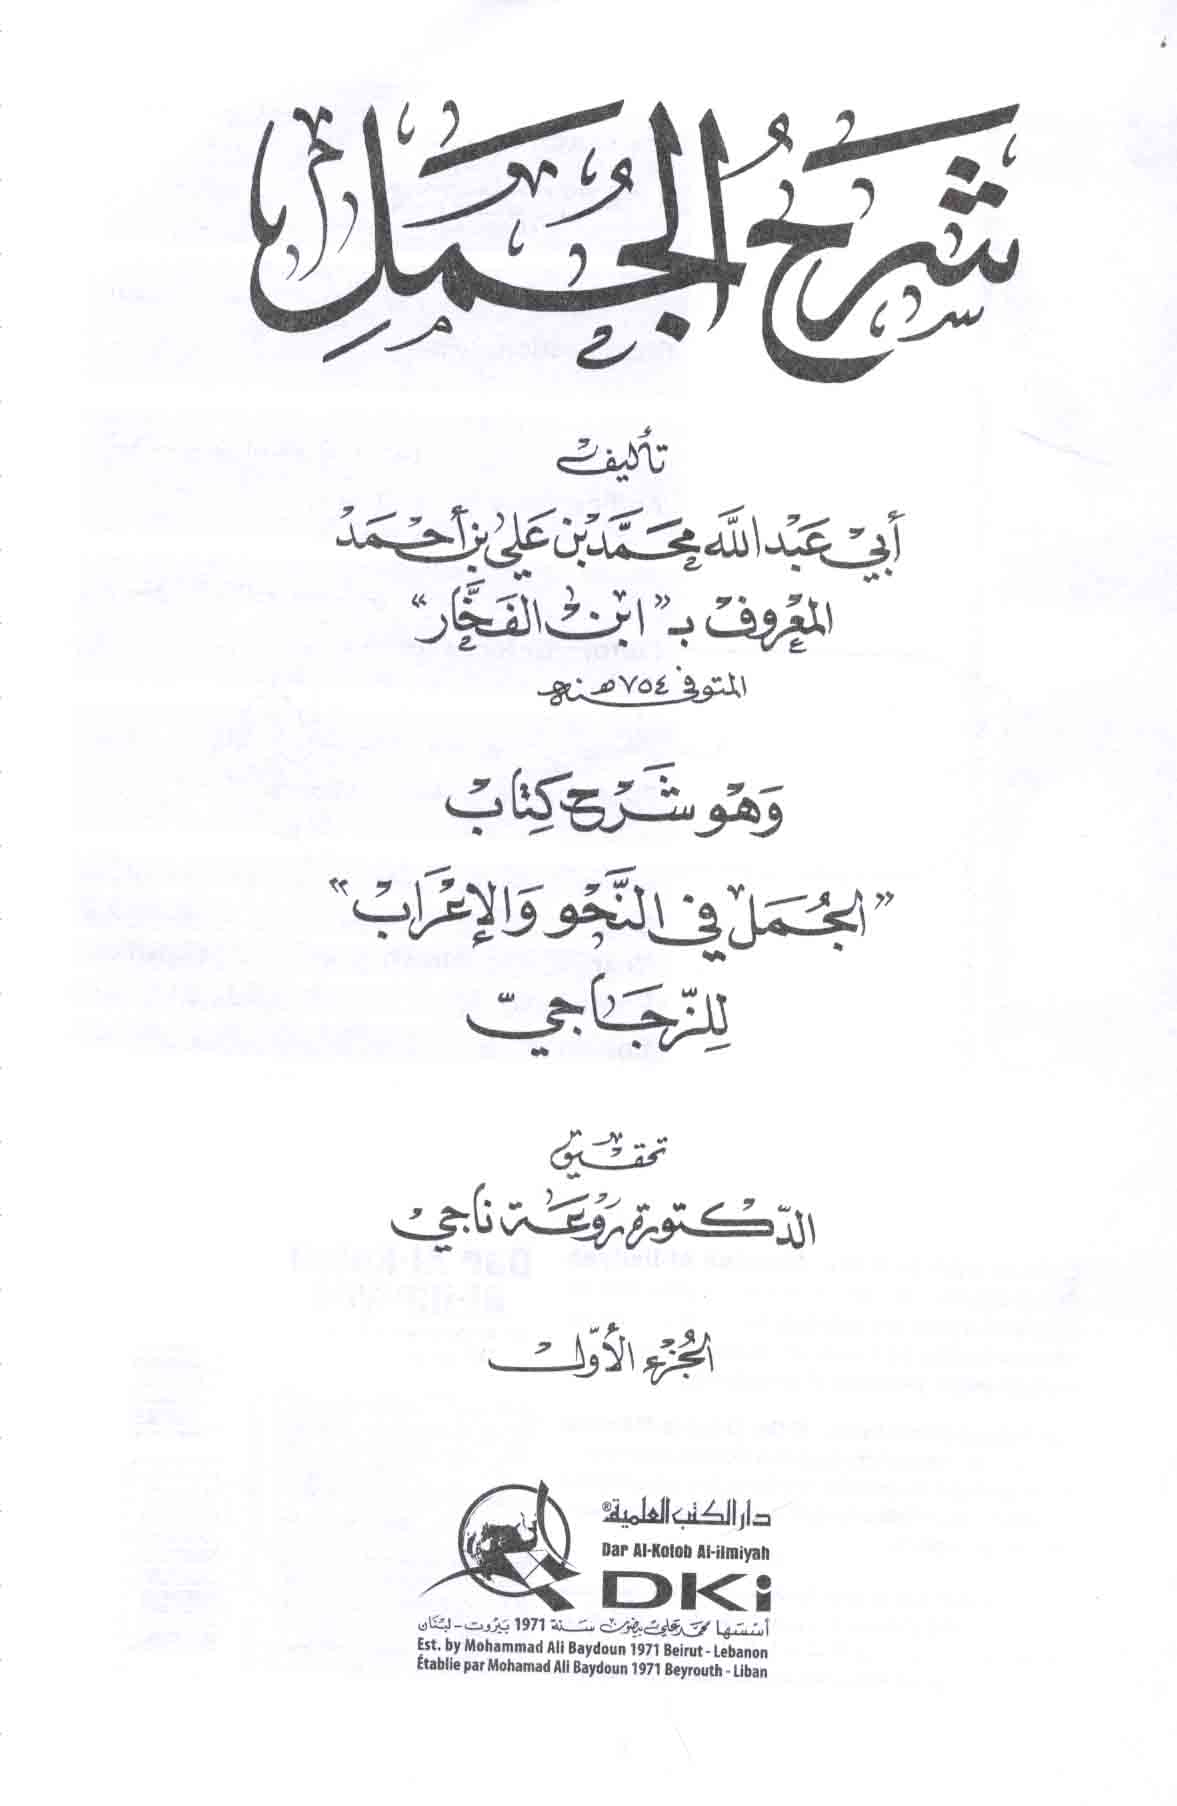 شَرْحُ الجُمَلِ
تأليف
أبي عَبْد اللَّه محَمَّد بْن عَلي بن أحْمَدْ
المعْروف بـ "ابن الفَخَّار"
المتوفى ٧٥٤ هـ سنة
وَهْو شَرْح كِتَابْ
"الجُمَل في النَّحْو وَالإعْرَابْ"
لِلزّجَاجيّ
تحقيق
الدّكتورة رَوْعَة نَاجي
الجُزء الأوّل
دار الكتب العلمية®
Dar Al-Kotob Al-ilmiyah
DKi
أسسها محمد علي بيضون سنة 1971 بيروت - لبنان
Est. by Mohammad Ali Baydoun 1971 Beirut - Lebanon
Établie par Mohamad Ali Baydoun 1971 Beyrouth - Liban